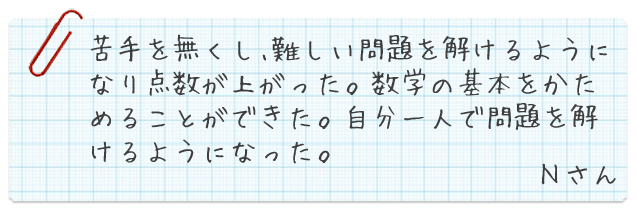 苦手を無くし、難しい問題を解けるように
なり点数が上がった。数学の基本をかた
めることができた。自分一人で問題を解
けるようになった。
Nさん